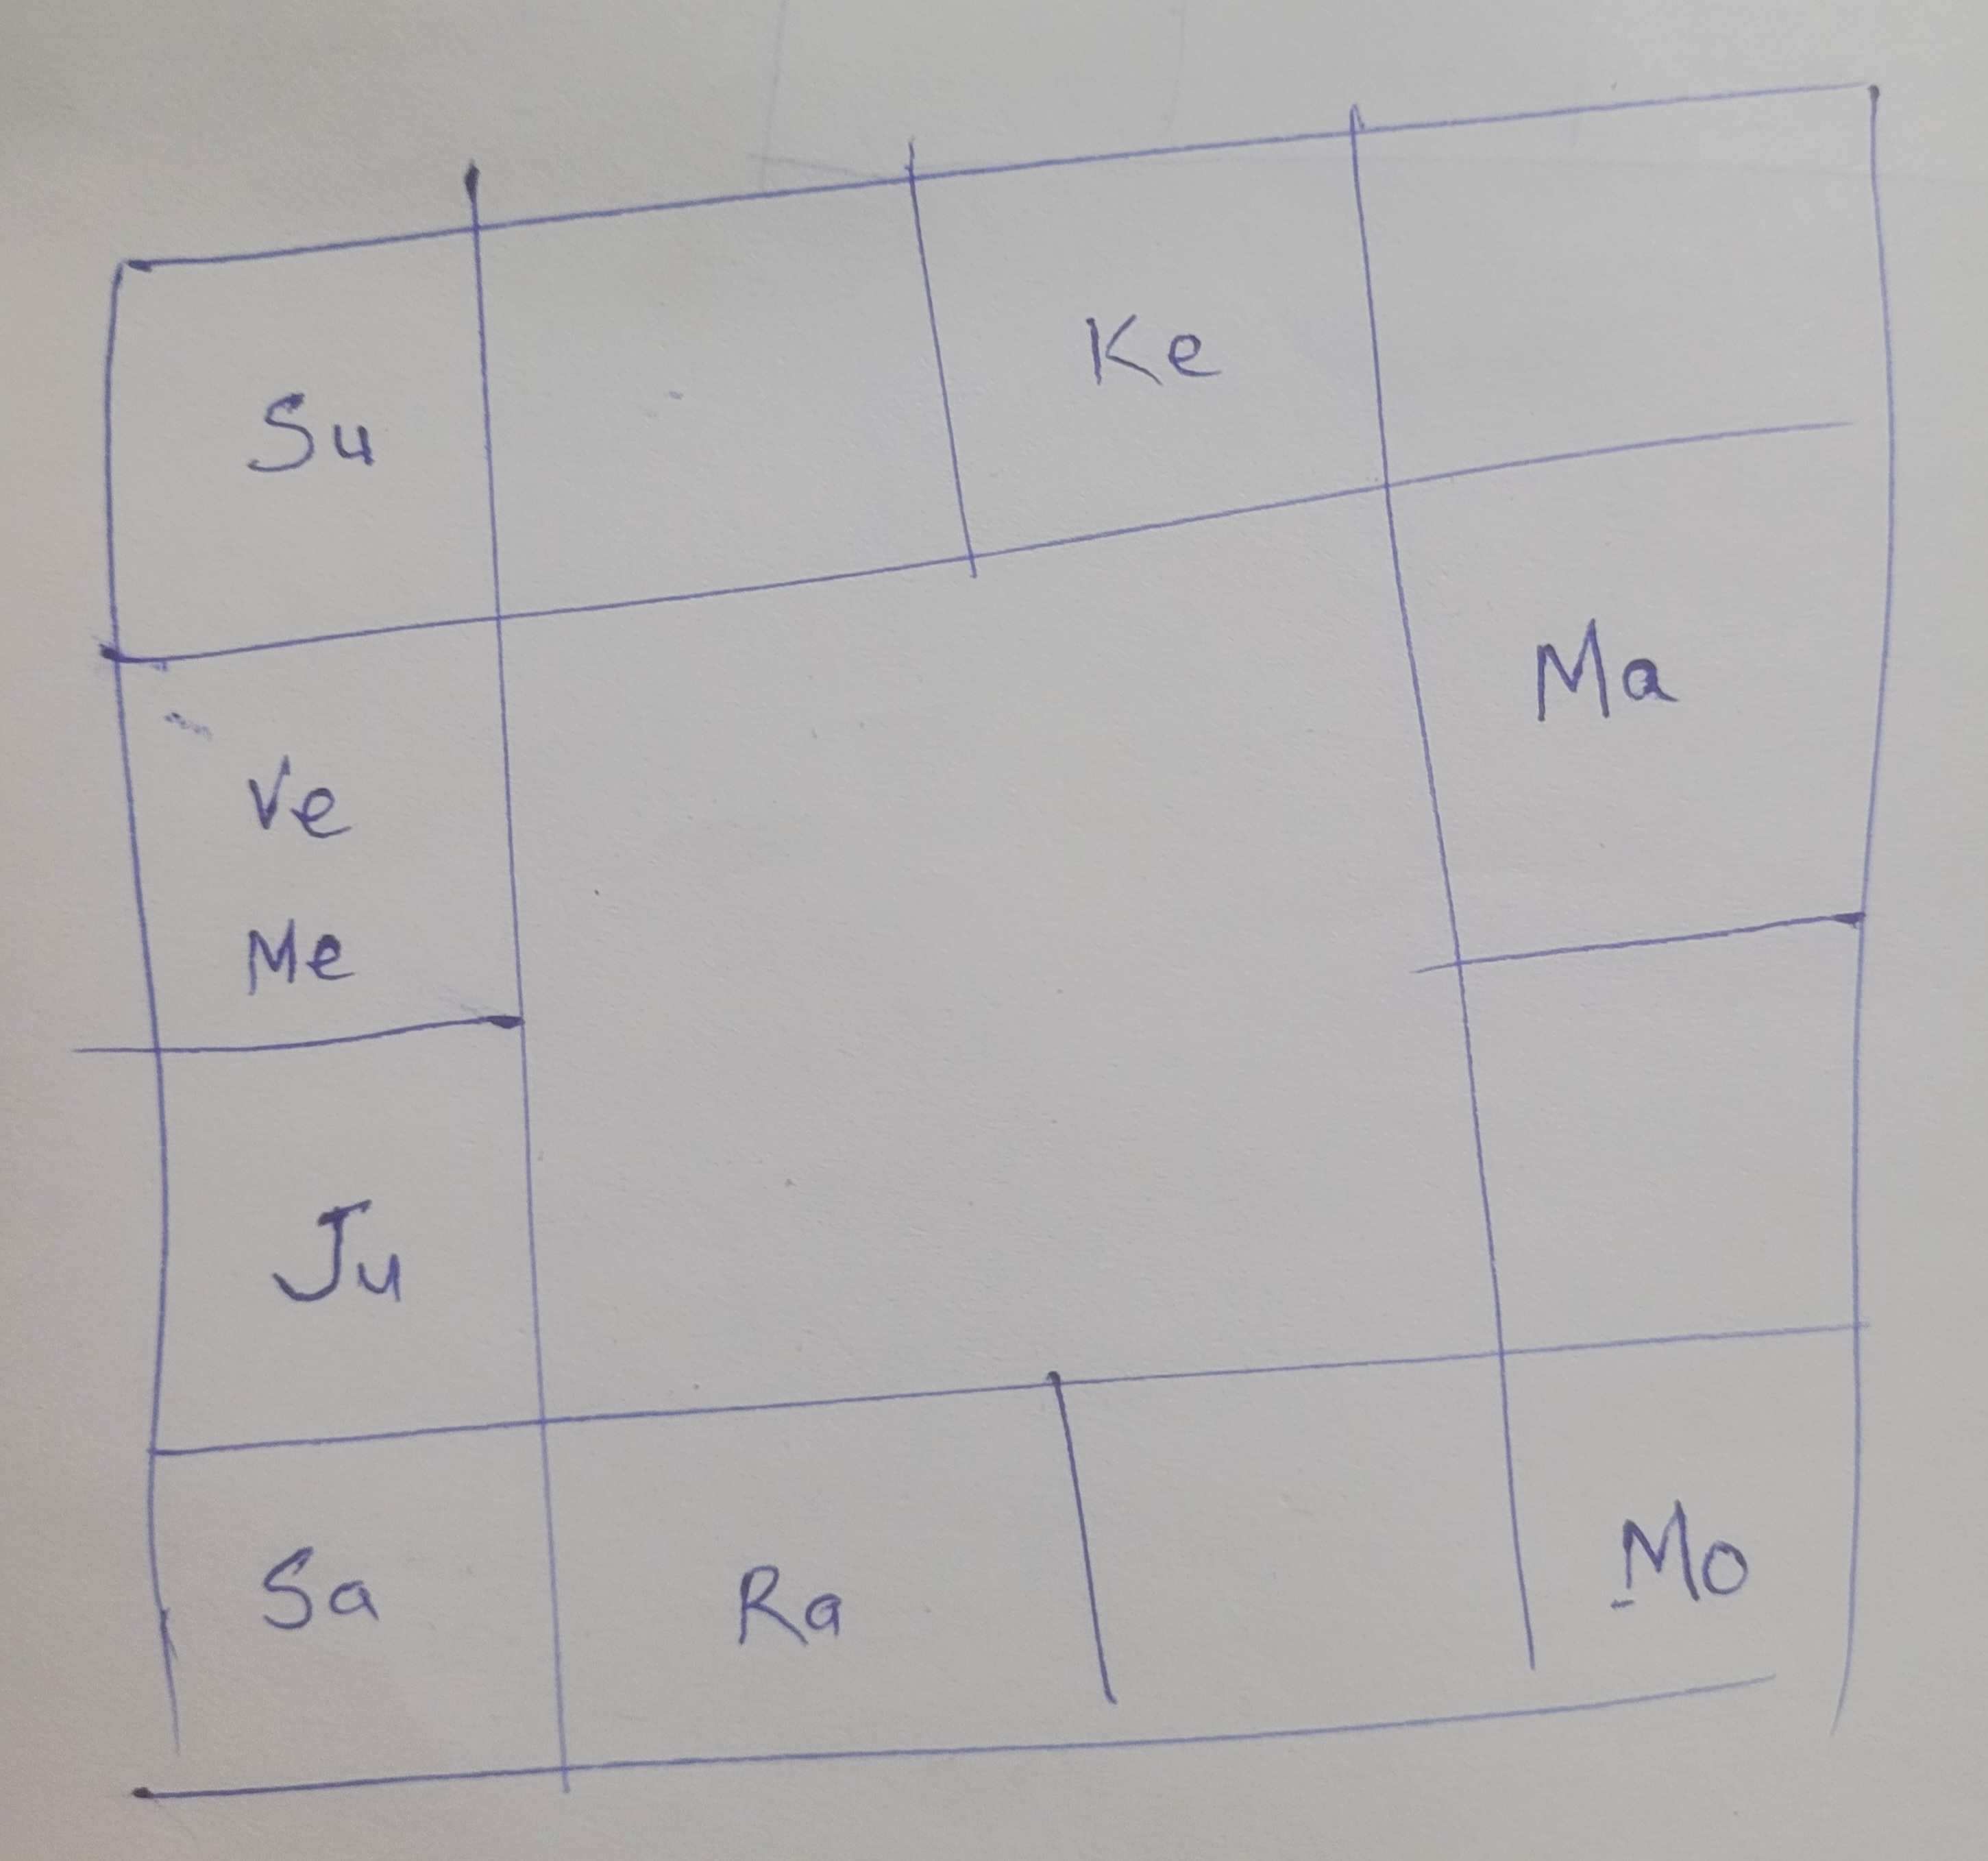 Su
Ke
Ve
Me
Ma
Ju
Sa
Ra
Mo